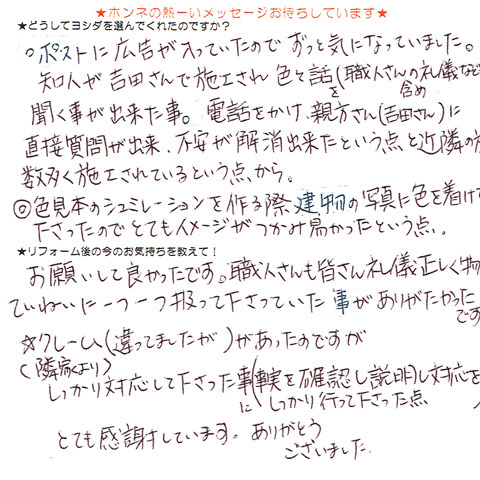 ★ホンネの熱ーいメッセージお待ちしています★
★どうしてヨシダを選んでくれたのですか?
○ポストに広告が入っていたのでずっと気になっていました。
知人が吉田さんで施工され色と話を(職人さんの礼儀など含め
聞く事が出来た事。電話をかけ、親方さん(吉田さん)に
直接質問が出来、不安が解消出来たという点と近隣の
数多く施工されているという点から。
◎色見本のシュミレーションを作る際建物の写真に色を着け
下さったのでとてもイメージがつかみ易かったという点。
★リフォーム後の今のお気持ちを教えて!
お願いして良かったです。職人さんも皆さん礼儀正しく物
ていねいに一つ一つ扱って下さっていた事がありがたかったです
☆クレーム(違ってましたが)があったのですが
(隣家より)
しっかり対応して下さった事(事実を確認し説明し対応を
にしっかり行って下さった点
とても感謝しています。ありがとう
ございました。